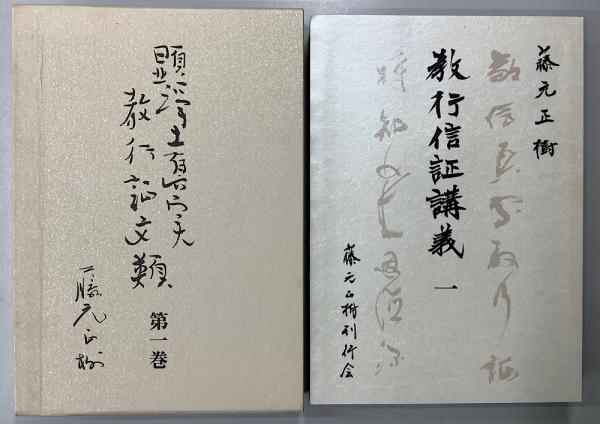 顕浄土真実
教行証文類
第一巻
藤元正樹
藤元正樹
敬信真宗教行証
教行信証講義 一
特知如来恩徳深
藤元正樹刊行会